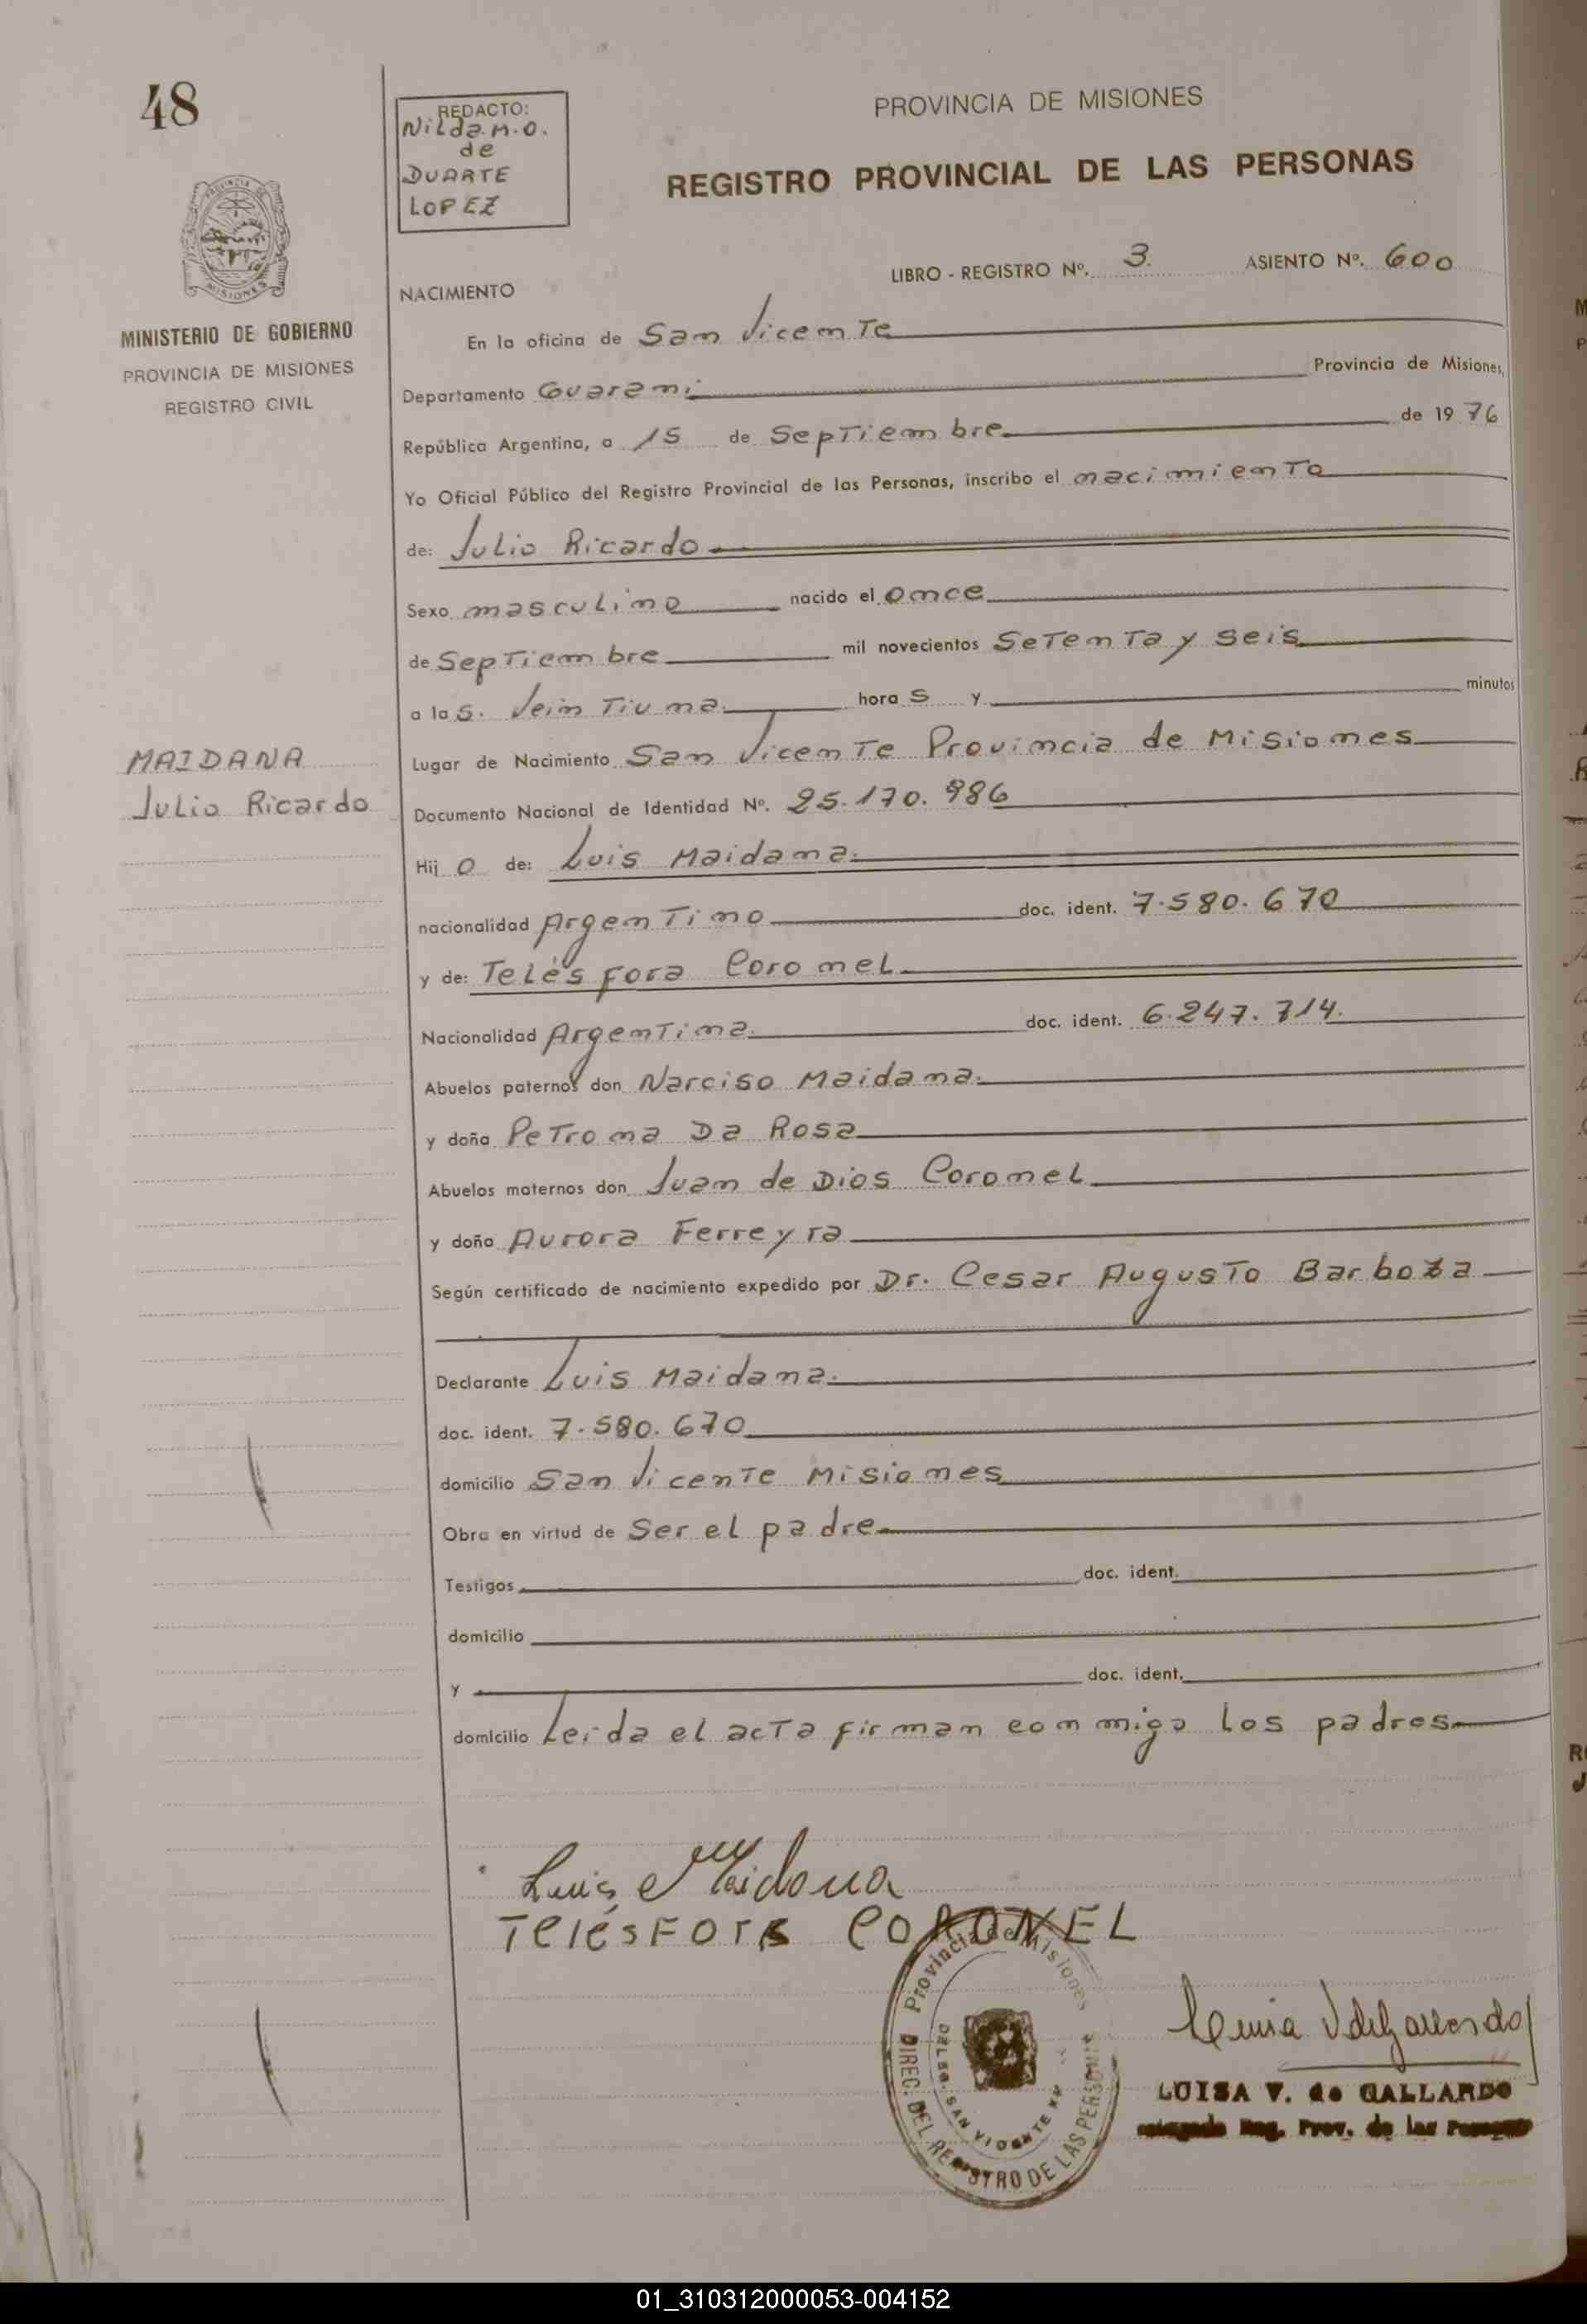 48
REDACTO:
Nilda.M.O.
de
DUARTE
LOPEZ
PROVINCIA DE MISIONES
REGISTRO PROVINCIAL DE LAS PERSONAS
MINISTERIO DE GOBIERNO
PROVINCIA DE MISIONES
REGISTRO CIVIL
LIBRO - REGISTRO Nº. 3. ASIENTO Nº. 600
NACIMIENTO
En la oficina de San Vicente
Departamento Guarani Provincia de Misiones,
República Argentina, a 15 de Septiembre de 1976
Yo Oficial Público del Registro Provincial de las Personas, inscribo el nacimiento
de: Julio Ricardo
Sexo masculino nacido el once
de Septiembre mil novecientos Setenta y seis
a las. Veintiuna hora s y minutos
MAIDANA
Julio Ricardo
Lugar de Nacimiento San Vicente Provincia de Misiones
Documento Nacional de Identidad Nº. 25.170.986
Hij o de: Luis Maidana.
nacionalidad Argentino doc. ident. 7.580.670
y de: Telésfora Coronel
Nacionalidad Argentina doc. ident. 6.247.714.
Abuelos paternos don Narciso Maidana.
y doña Petrona Da Rosa
Abuelos maternos don Juan de Dios Coronel
y doña Aurora Ferreyra
Según certificado de nacimiento expedido por Dr. Cesar Augusto Barboza
Declarante Luis Maidana.
doc. ident. 7.580.670
domicilio San Vicente Misiones
Obra en virtud de Ser el padre
Testigos doc. ident.
domicilio
y doc. ident.
domicilio Leida el acta firman conmigo los padres
Luis Maidana
Telésfora CORONEL
Provincia de Misiones
DIREC. DEL REGISTRO DE LAS PERSONAS
SAN VICENTE
Luisa V de Gallardo
LUISA V. de GALLARDO
Reg. Prov. de las Personas
01_310312000053-004152